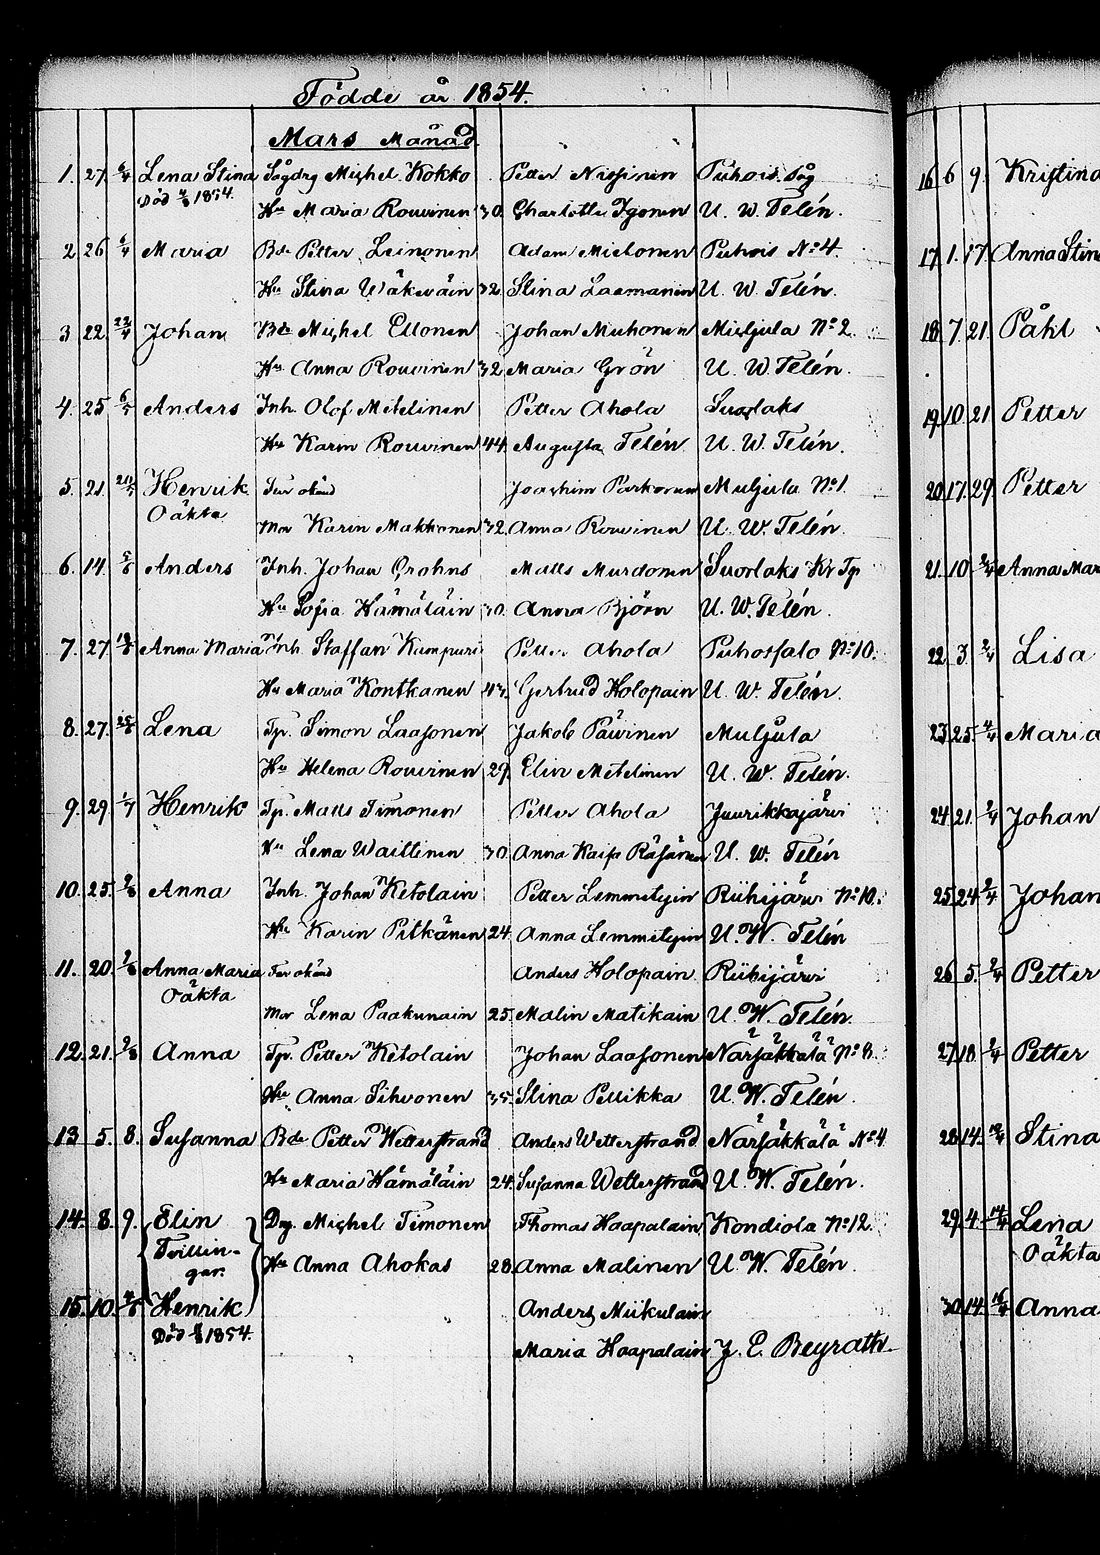 Födde år 1854.
Mars Månad
1. 27. 6/4 Lena Stina Sågdrg Michel Kokko Petter Nissinen Puhois såg
Död 1854. Hu Maria Rouvinen 30. Charlotta Igonen U. W. Telén.
2 26 6/4 Maria Bde Petter Leinonen Adam Mietonen Puhois No 4
Hu Stina Wäkeväin 32 Stina Laamanen U. W. Telén.
3 22. 22/4 Johan Bde Michel Ellonen Johan Muhonen Misljula No 2
Hu Anna Rouvinen 32 Maria Grön U. W. Telén.
4. 25 Anders Inh. Olof Metelinen Petter Ahola Suorlaks
Hu Karin Rouvinen 44. Augusta Telén U. W. Telén.
5. 21 Henrik Far okänd Joachim Parkonen Muljula No 1
Oäkta Mor Karin Makkonen 32. Anna Rouvinen U. W. Telén.
6. 14. Anders Inh. Johan Grohns Matts Murdonen Suorlaks Kr Tp
Hu Sofia Hämäläin 30. Anna Björn U. W. Telén.
7. 27. Anna Maria Inh. Staffan Kumpuri Petter Ahola Puhosfalo No 10.
Hu Maria Kontkanen Gertrud Holopain U. W. Telén.
8. 27. Lena Tp. Simon Laasonen Jakob Päivinen Muljula
Hu Helena Rouvinen 29. Elin Metelinen U. W. Telén.
9. 29. Henrik Tp. Matts Timonen Petter Ahola Juurikkajärvi
Hu Lena Waittinen 30. Anna Kaisa Räsänen U. W. Telén
10. 25. Anna Inh. Johan Ketolain Petter Lemmetyin Riihijärvi No 10.
Hu Karin Pitkänen 24. Anna Lemmetyin U. W. Telén
11. 20. Anna Maria Far okänd Anders Holopain Riihijärvi
Oäkta Mor Lena Paakunain 25. Malin Matikain U. W. Telén.
12. 21. Anna Tp. Petter Ketolain Johan Laasonen Närsäkkälä No 8.
Hu Anna Sihvonen 35. Stina Pellikka U. W. Telén.
13 5. 8. Susanna Bde Petter Wetterstrand Anders Wetterstrand Närsäkkälä No 4
Hu Maria Hämäläin 24. Susanna Wetterstrand U. W. Telén.
14. 8. 9. Elin Drg. Michel Timonen Thomas Haapalain Kondiola No 12.
Tvillin-
gar. Hu Anna Ahokas 28. Anna Malinen U. W. Telén.
15. 10. Henrik Anders Miikulain
Död 1854. Maria Haapalain J. E. Beyrath
16 6 9. Kristina
17. 1. 17. Anna Stin
18. 7. 21. Påhl
19. 10. 21 Petter
20. 17. 29. Petter
21. 10 Anna Mar
22. 3. Lisa
23. 25. Maria
24. 21. Johan
25. 24 Johan
26 5. Petter
27. 18. Petter
28. 14. Stina
29. 4. Lena
Oäkta
30. 14. Anna